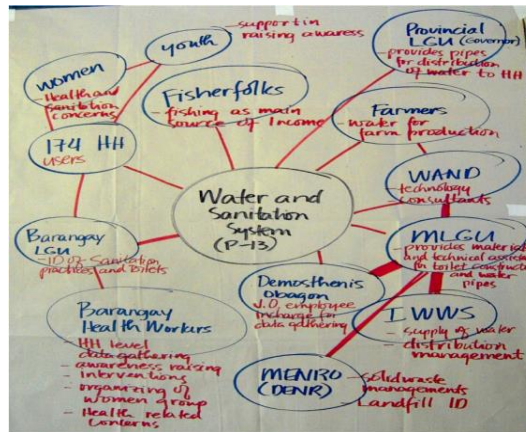 youth
- support in
raising awaress
Provincial
LGU (Governor)
- provides pipes
for distribution
of water to HH
women
- Health and
sanitation
concerns
Fisherfolks
- fishing as main
source of Income
Farmers
- water for
farm production
174 HH
users
WAND
- technology
consultants
Water and
Sanitation
System
(P-13)
Barangay
LGU
- ID of Sanitation
practices and toilets
MLGU
- provides material
and technical assist
for toilet construct
and water
pipes
Demosthenis
Obagon
J.O employee
incharge for
data gathering
Barangay
Health Workers
- HH level
data gathering
- awareness raising
- Interventions
- organizing of
women group
- Health related
concerns
WWS
- supply of water
- distribution
management
MENRO
(DENR)
- Solid waste
managements
- Landfill ID